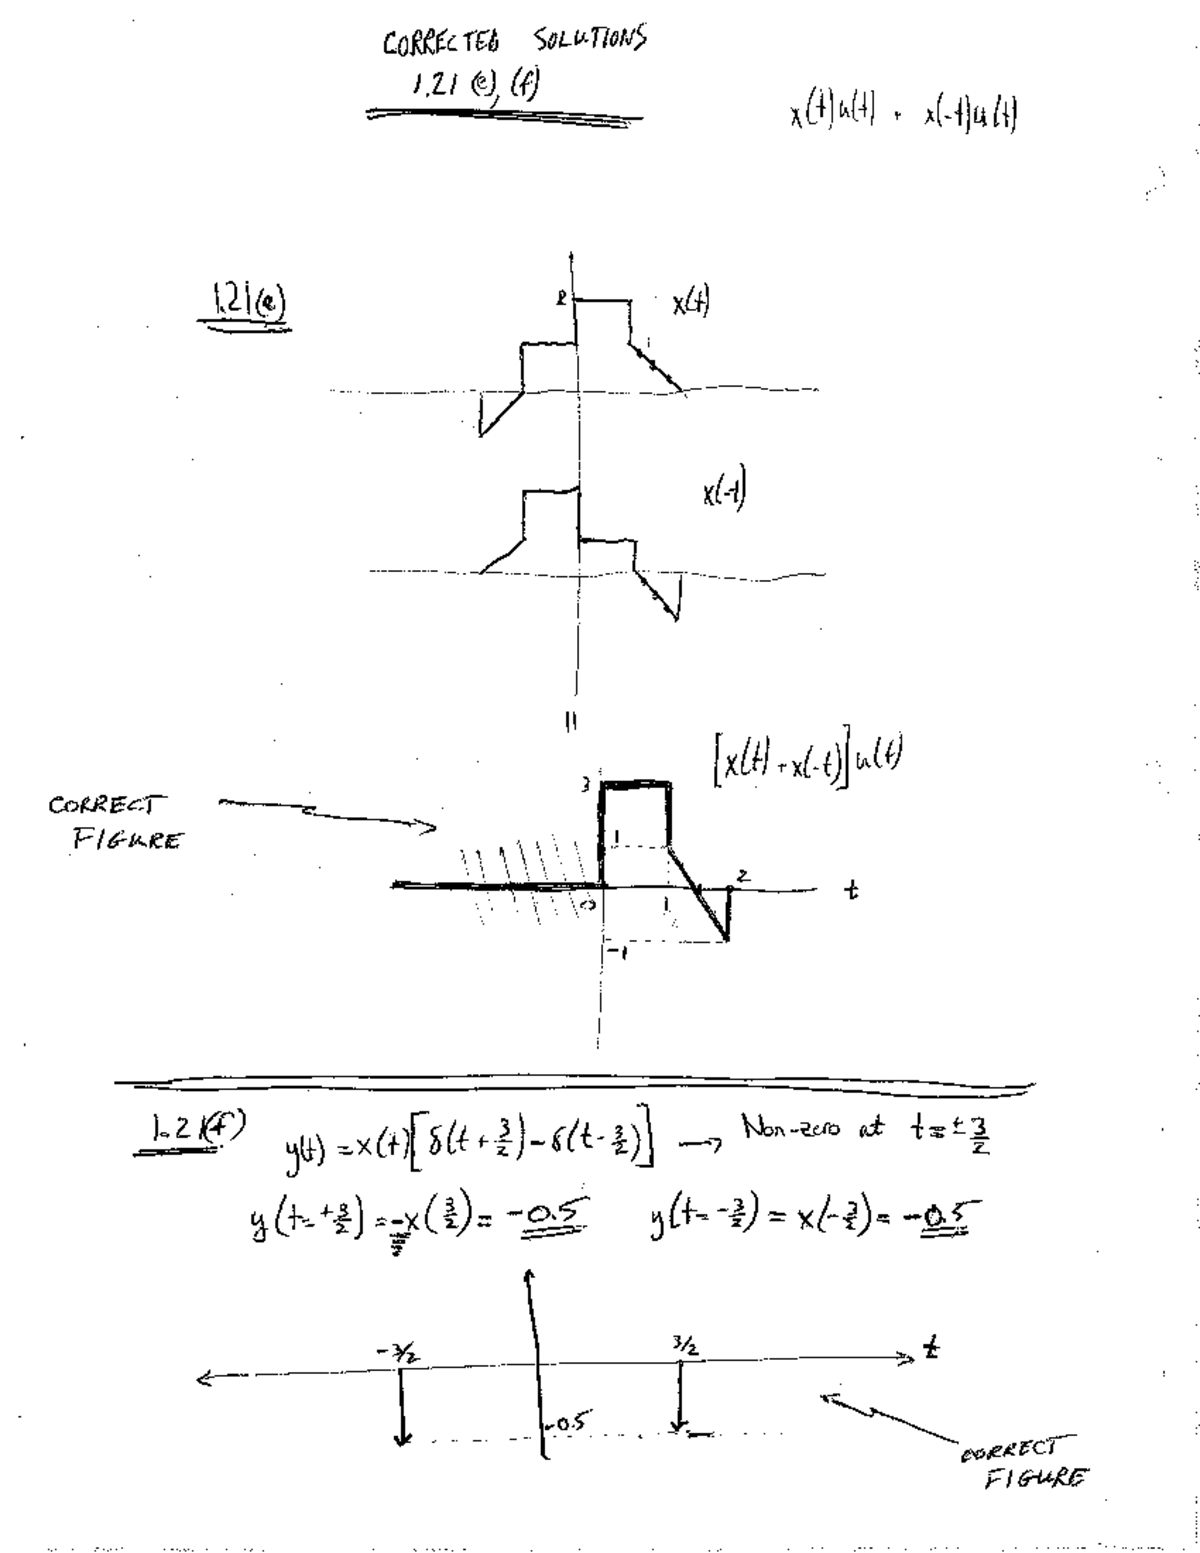 CORRECTED SOLUTIONS
1.21 (e), (f)
x(t)u(t) + x(-t)u(t)
1.21(e)
2
x(t)
1
x(-t)
=
[x(t) + x(-t)]u(t)
3
CORRECT
FIGURE
1
2
t
0
1
-1
1.21(f)
y(t) = x(t)[δ(t + 3/2) - δ(t - 3/2)] → Non-zero at t = ± 3/2
y(t = +3/2) = -x(3/2) = -0.5 y(t = -3/2) = x(-3/2) = -0.5
-3/2
3/2
t
-0.5
CORRECT
FIGURE